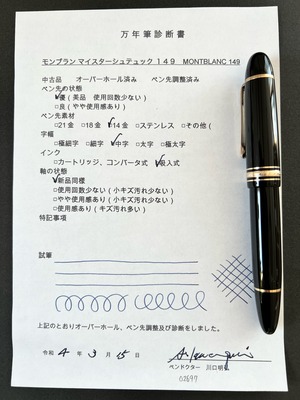 万年筆診断書
モンブラン マイスターシュテュック １４９　MONTBLANC 149
中古品　オーバーホール済み　ペン先調整済み
ペン先の状態
☑優(美品　使用回数少ない)
□良(やや使用感あり)
ペン先素材
□21金　□18金　☑14金　□ステンレス　□その他(
字幅
□極細字　□細字　☑中字　□太字　□極太字
インク
□カートリッジ、コンバータ式　☑吸入式
軸の状態
☑新品同様
□使用回数少ない(小キズ汚れ少ない)
□やや使用感あり(小キズ汚れ少ない)
□使用感あり(キズ汚れ多い)
特記事項
試筆
上記のとおりオーバーホール、ペン先調整及び診断をしました。
令和 4 年 3 月 15 日
ペンドクター　川口明弘
02697